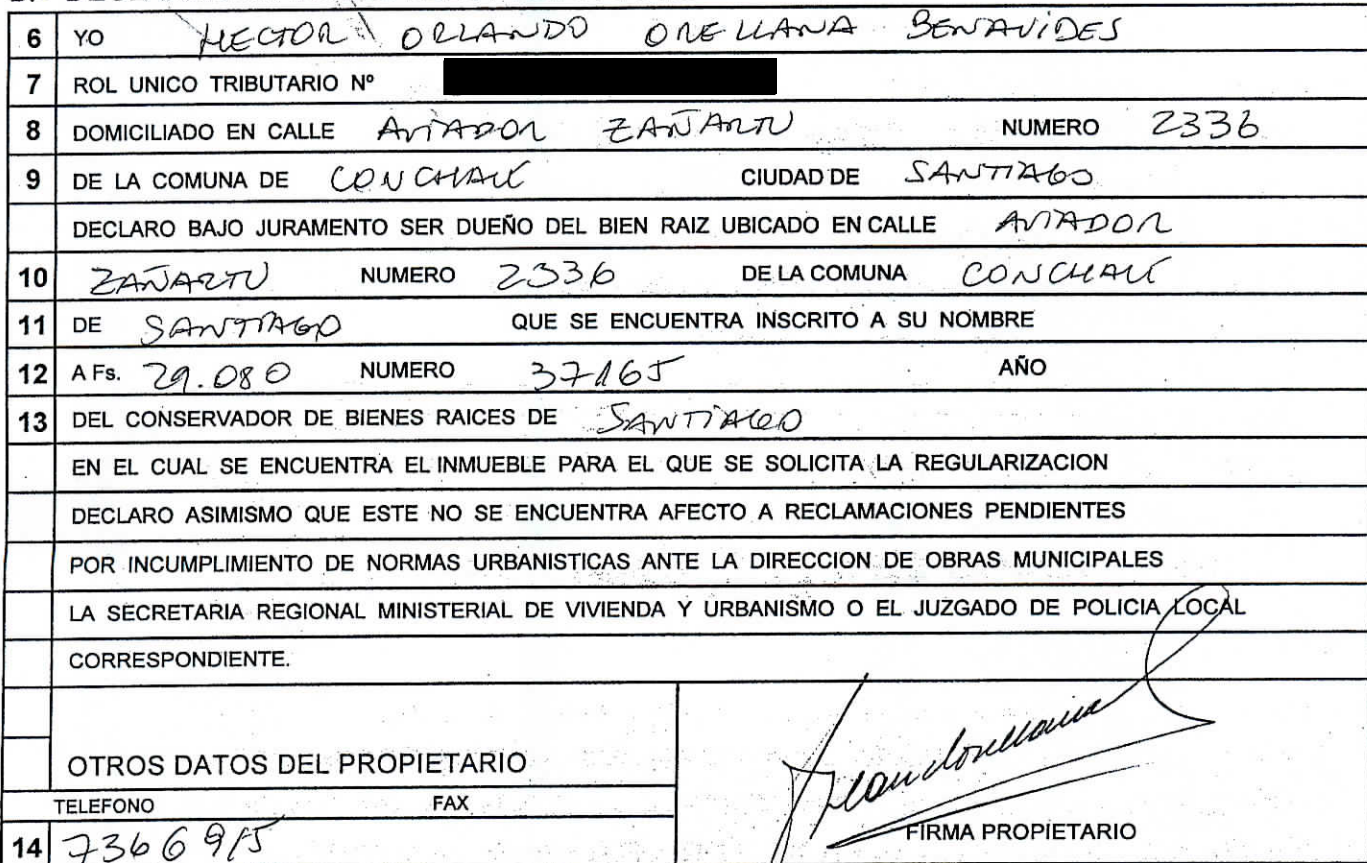 6 YO HECTOR ORLANDO ORELLANA BENAVIDES
7 ROL UNICO TRIBUTARIO Nº
8 DOMICILIADO EN CALLE AVIADOR ZAÑARTU NUMERO 2336
9 DE LA COMUNA DE CONCHALI CIUDAD DE SANTIAGO
DECLARO BAJO JURAMENTO SER DUEÑO DEL BIEN RAIZ UBICADO EN CALLE AVIADOR
10 ZAÑARTU NUMERO 2336 DE LA COMUNA CONCHALI
11 DE SANTIAGO QUE SE ENCUENTRA INSCRITO A SU NOMBRE
12 A Fs. 29.080 NUMERO 37165 AÑO
13 DEL CONSERVADOR DE BIENES RAICES DE SANTIAGO
EN EL CUAL SE ENCUENTRA EL INMUEBLE PARA EL QUE SE SOLICITA LA REGULARIZACION
DECLARO ASIMISMO QUE ESTE NO SE ENCUENTRA AFECTO A RECLAMACIONES PENDIENTES
POR INCUMPLIMIENTO DE NORMAS URBANISTICAS ANTE LA DIRECCION DE OBRAS MUNICIPALES
LA SECRETARIA REGIONAL MINISTERIAL DE VIVIENDA Y URBANISMO O EL JUZGADO DE POLICIA LOCAL
CORRESPONDIENTE.
OTROS DATOS DEL PROPIETARIO
TELEFONO FAX
14 7366915
FIRMA PROPIETARIO